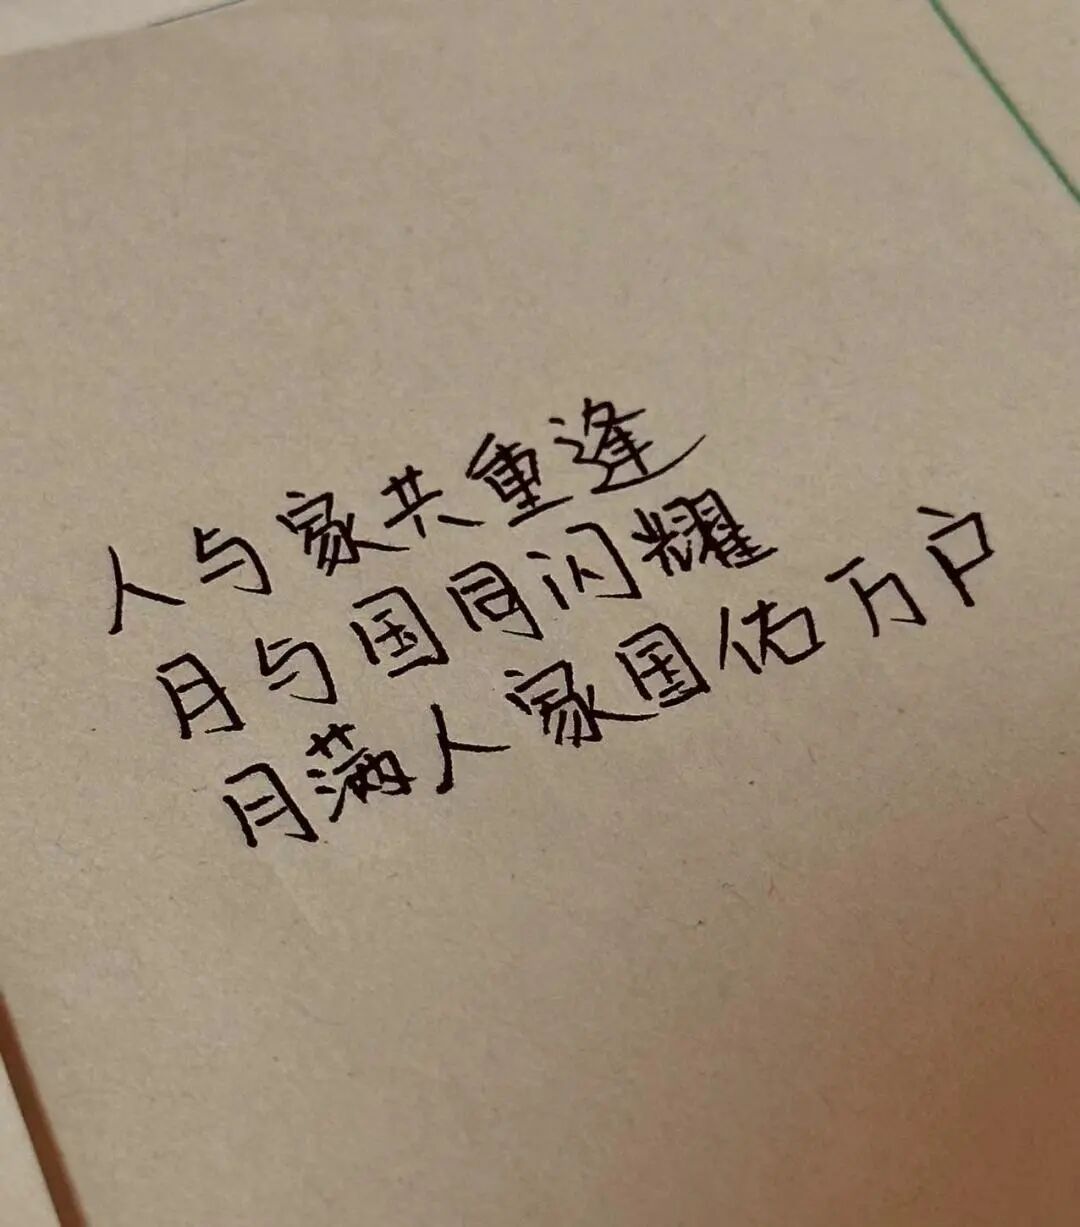 人与家共重逢
月与国同闪耀
月满人家国佑万户